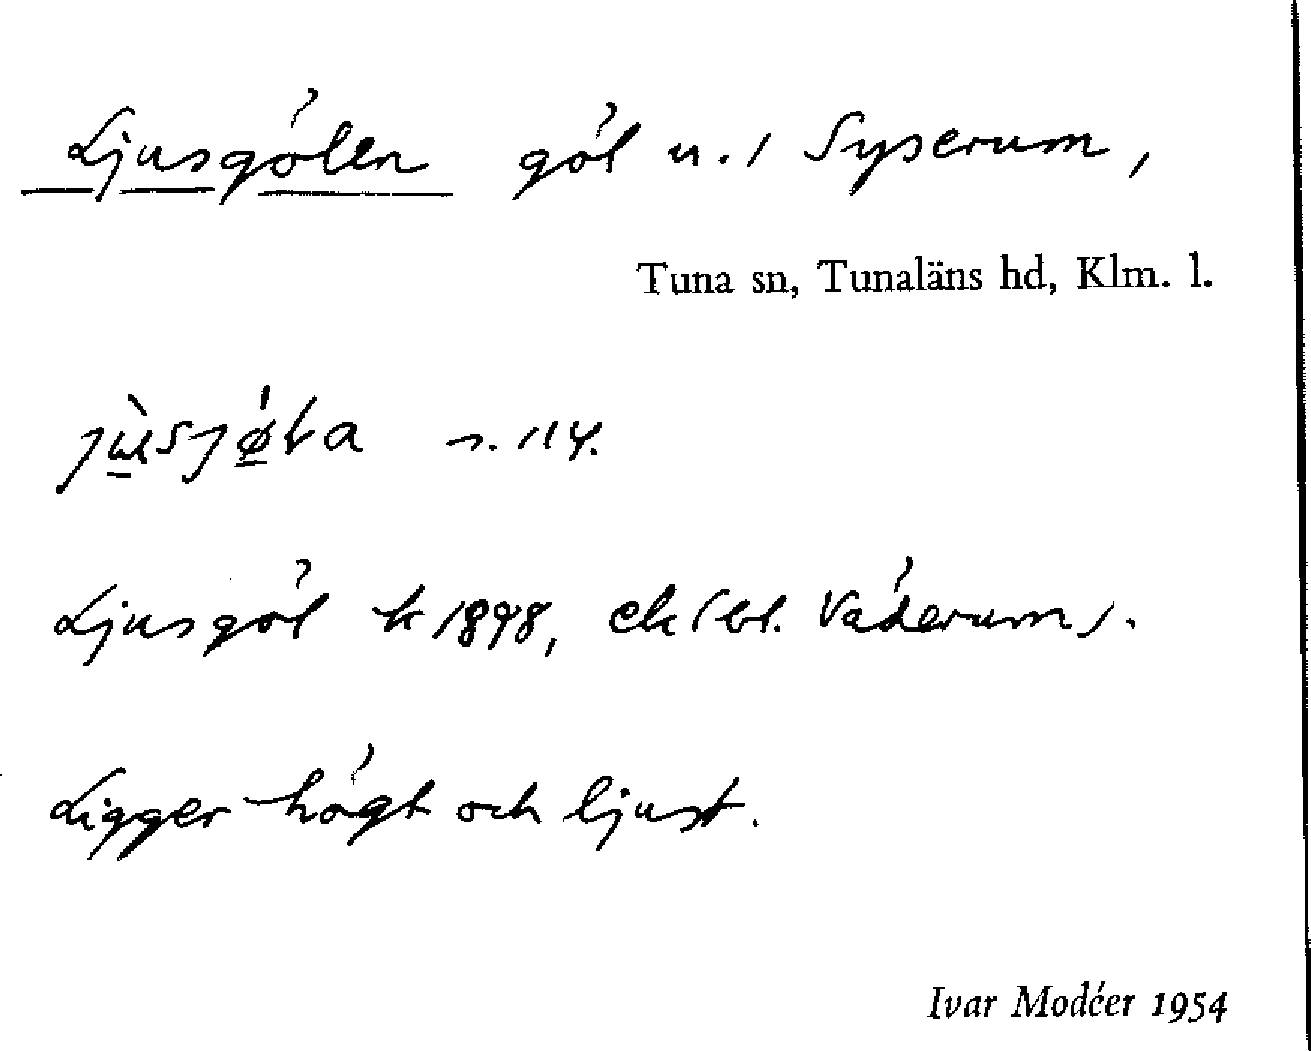 Ljusgölen göl u./ Syserum,
Tuna sn, Tunaläns hd, Klm. l.
s. 114.
Ljusgöl k 1898, ek (bl. Väderum).
Ligger högt och ljust.
Ivar Modéer 1954